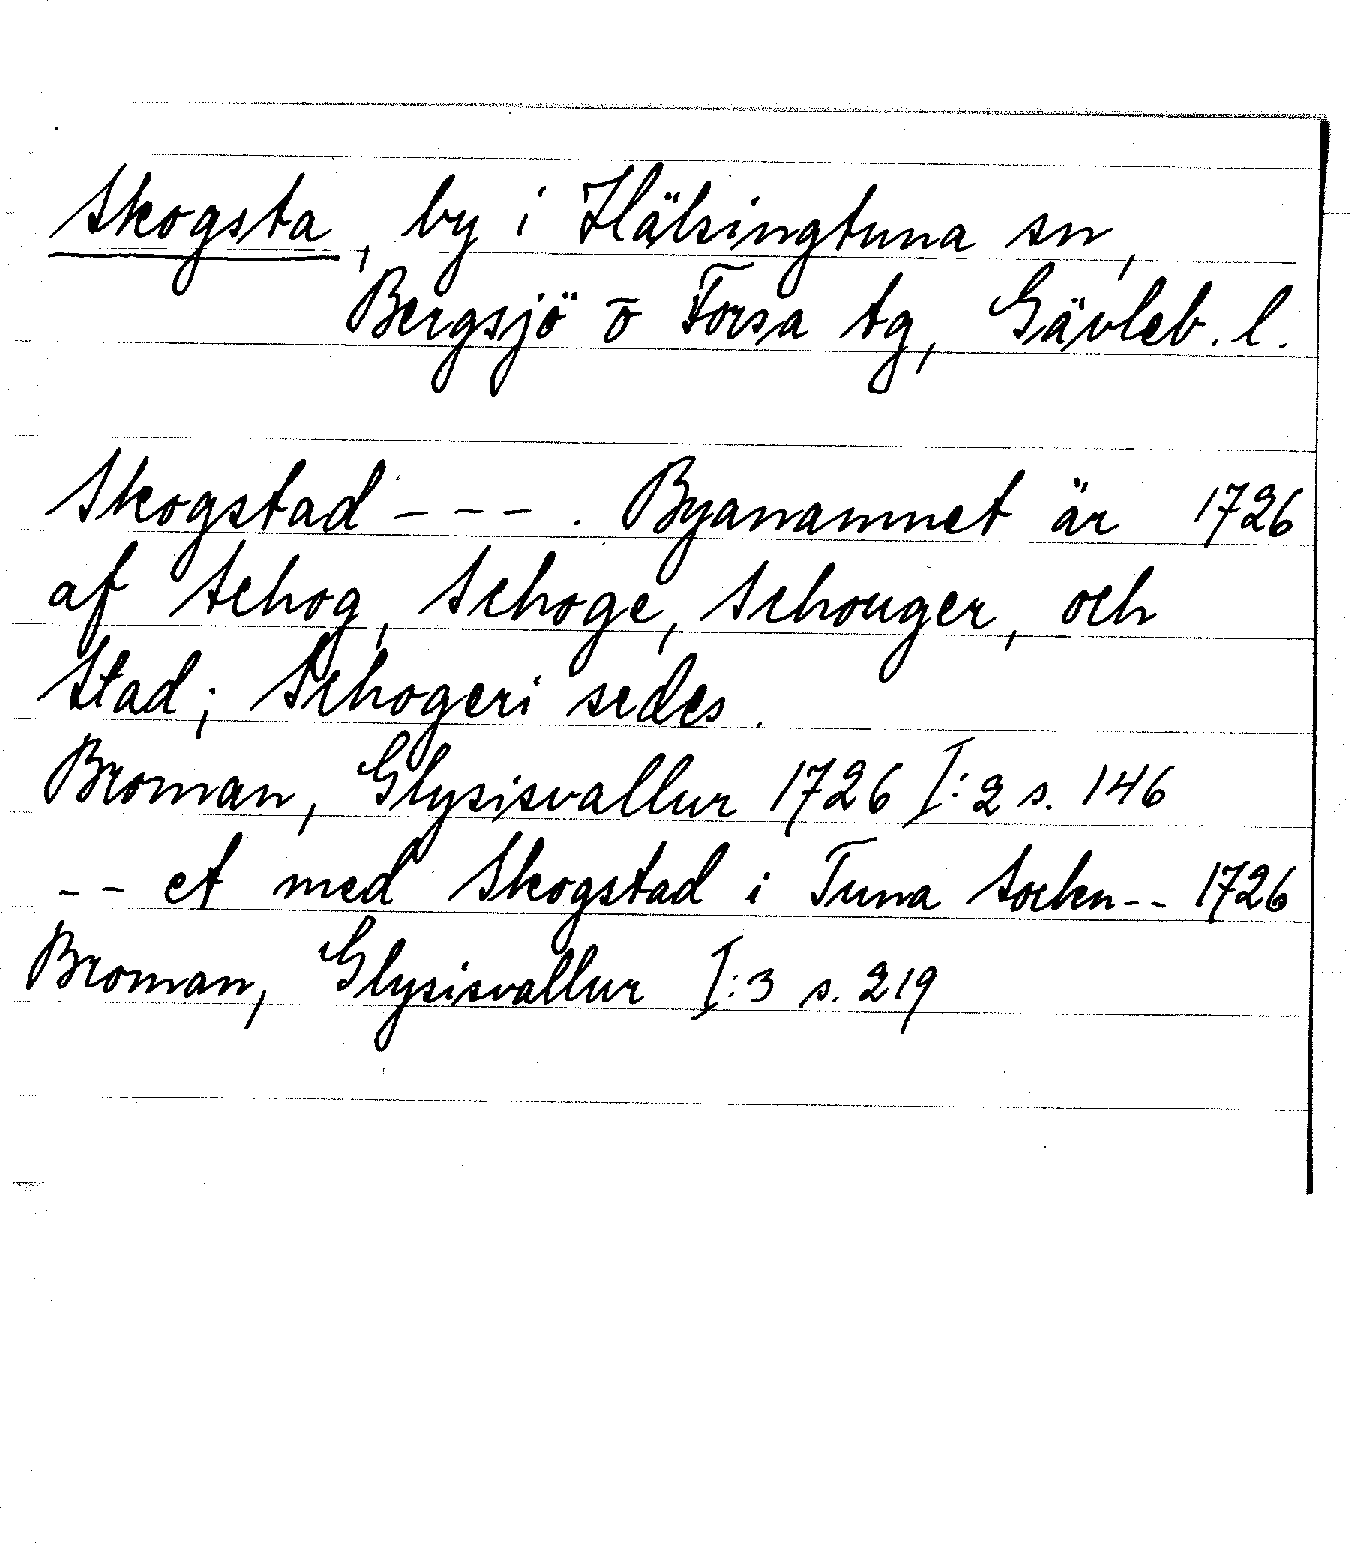 Skogsta, by i Hälsingtuna sn,
Bergsjö o Forsa tg, Gävleb. l.
Skogstad - - - . Byanamnet är 1726
af Schog, Schoge, Schouger, och
Stad; Schogeri sedes.
Broman, Glysisvallur 1726 I:2 s. 146
- - et med Skogstad i Tuna Sochn - - 1726
Broman, Glysisvallur I:3 s. 219